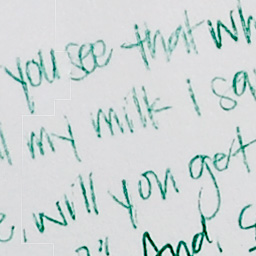 you see that wh
my milk I sa
e, will you get
And, S